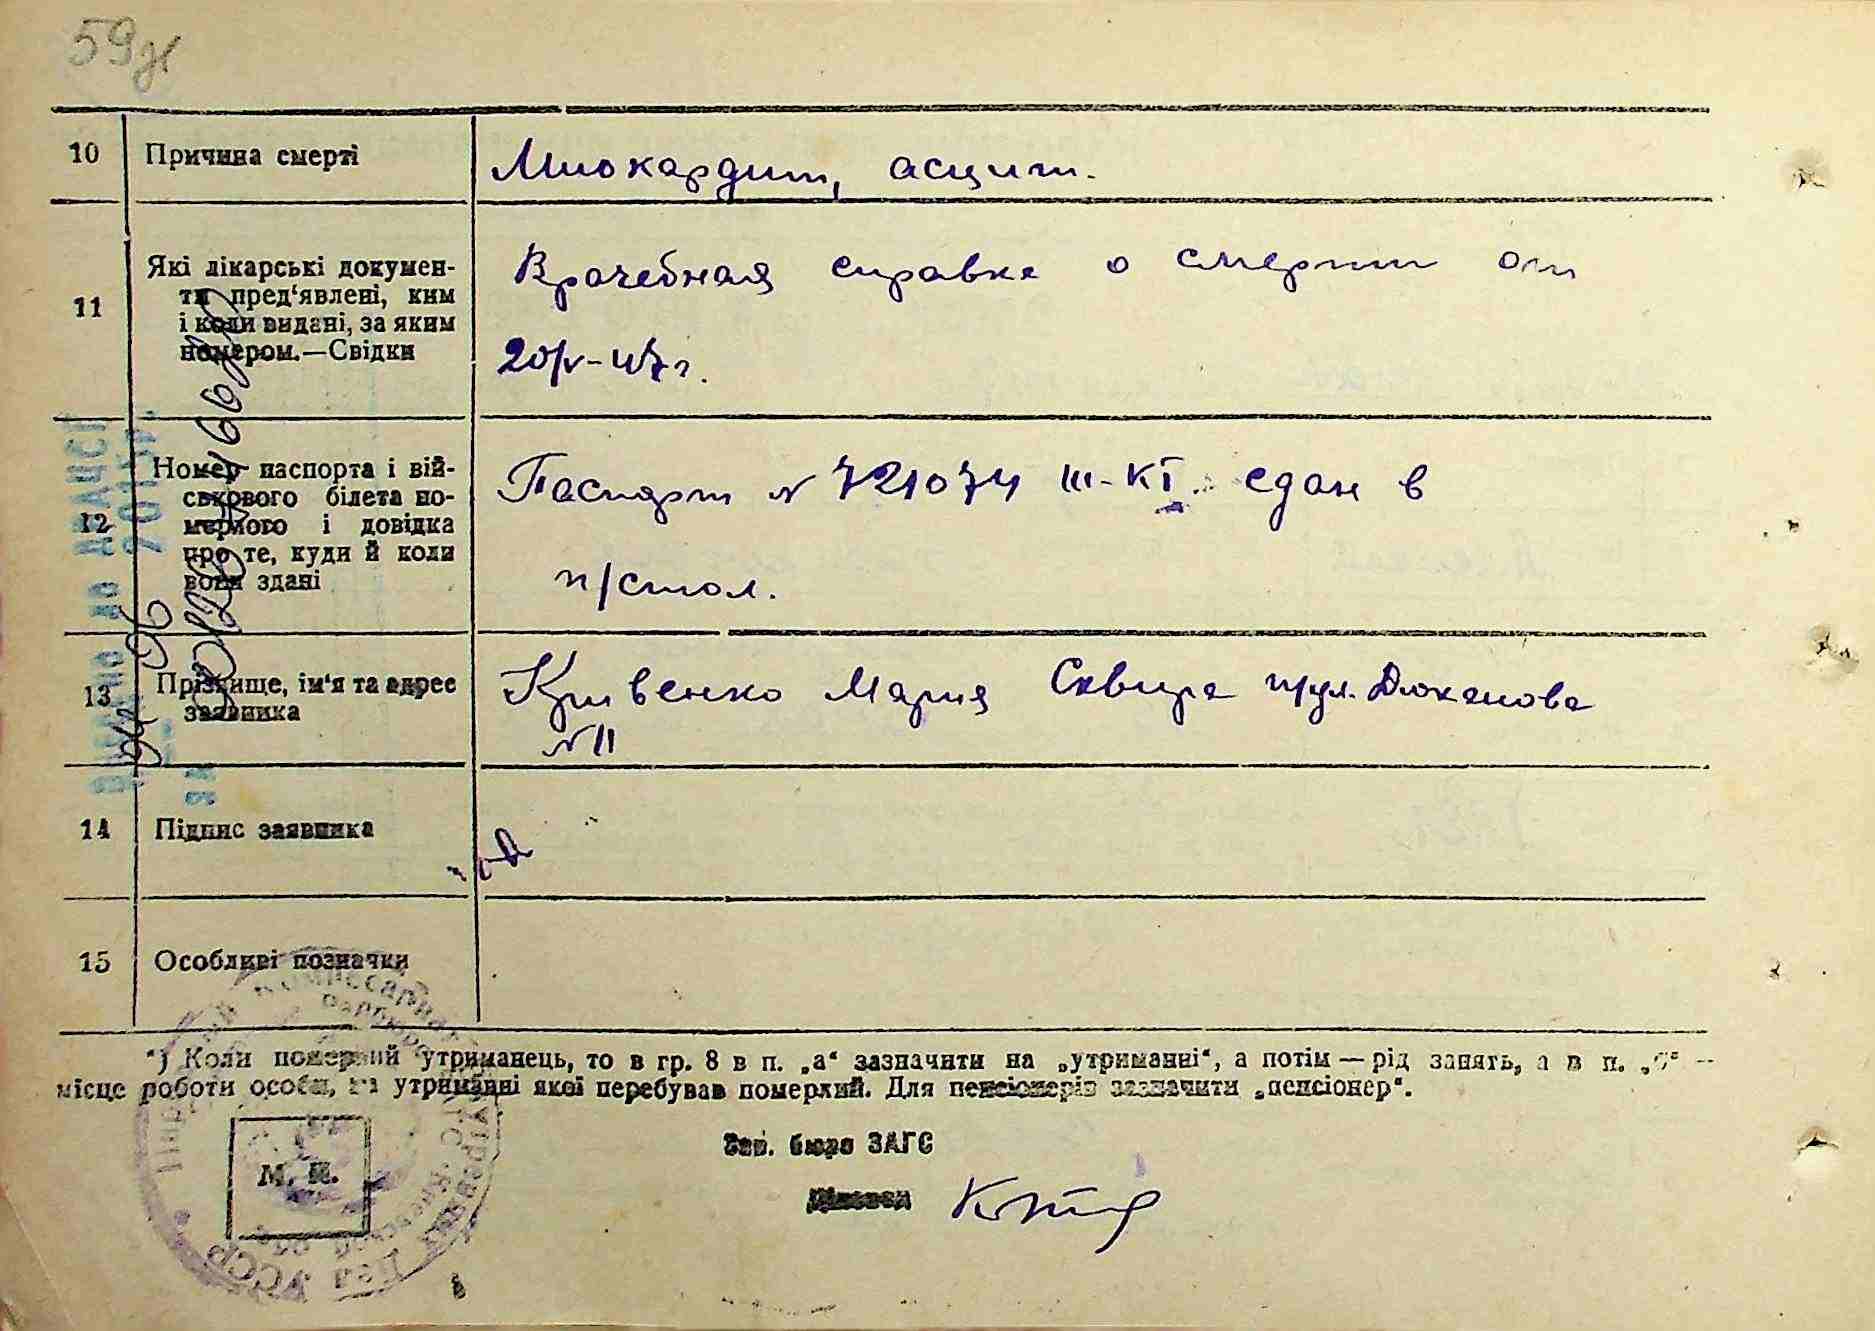 59
10 Причина смерті Миокардит, асцит.
11 Які лікарські докумен-
ти пред'явлені, ким
і коли видані, за яким
номером.—Свідки
Врачебная справка о смерти от
20/V-47 г.
12 Номер паспорта і вій-
ськового білета но-
мерного і довідка
про те, куди й коли
вони здані
Паспорт № 721074 III-КІ сдан в
п/стол.
13 Прізвище, ім'я та адрес
заявника
Кривенко Мария Сквира Дюканова
№ 11
14 Підпис заявника
15 Особливі позначки
*) Коли померлий утриманець, то в гр. 8 в п. „а“ зазначити на „утриманні“, а потім — рід занять, а в п.
місце роботи особи, на утриманні якої перебував померлий. Для пенсіонерів зазначити „пенсіонер“.
Зав. бюро ЗАГС
Діловод